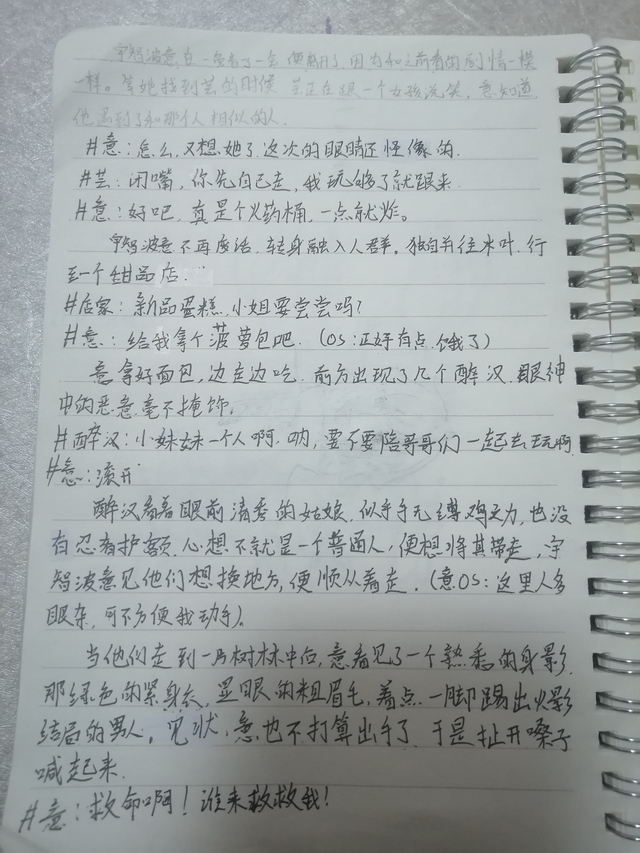 宇智波意在一旁看了一会便离开了,因为和之前看的剧情一模
一样。等她找到芸的时候 芸正在跟一个女孩说笑,意知道
他遇到了和那个人相似的人.
#意:怎么,又想她了,这次的眼睛还怪像的.
#芸:闭嘴,你先自己走,我玩够了就跟来.
#意:好吧,真是个火药桶,一点就炸。
宇智波意不再废话,转身融入人群。独自前往木叶,行
至一个甜品店...
#店家:新品蛋糕,小姐要尝尝吗?
#意:给我拿个菠萝包吧.(OS:正好有点饿了)
意拿好面包,边走边吃.前方出现了几个醉汉.眼神
中的恶意毫不掩饰.
#醉汉:小妹妹一个人啊.呐,要不要陪哥哥们一起去玩啊.
#意:滚开
醉汉看着眼前清秀的姑娘.似乎手无缚鸡之力,也没
有忍者护额.心想不就是一个普通人,便想将其带走,宇
智波意见他们想换地方,便顺从着走.(意OS:这里人多
眼杂,可不方便我动手).
当他们走到一片树林中后,意看见了一个熟悉的身影.
那绿色的紧身衣,显眼的粗眉毛,差点一脚踢出火影
结局的男人,见状,意也不打算出手了.于是扯开嗓子
喊起来.
#意:救命啊!谁来救救我!